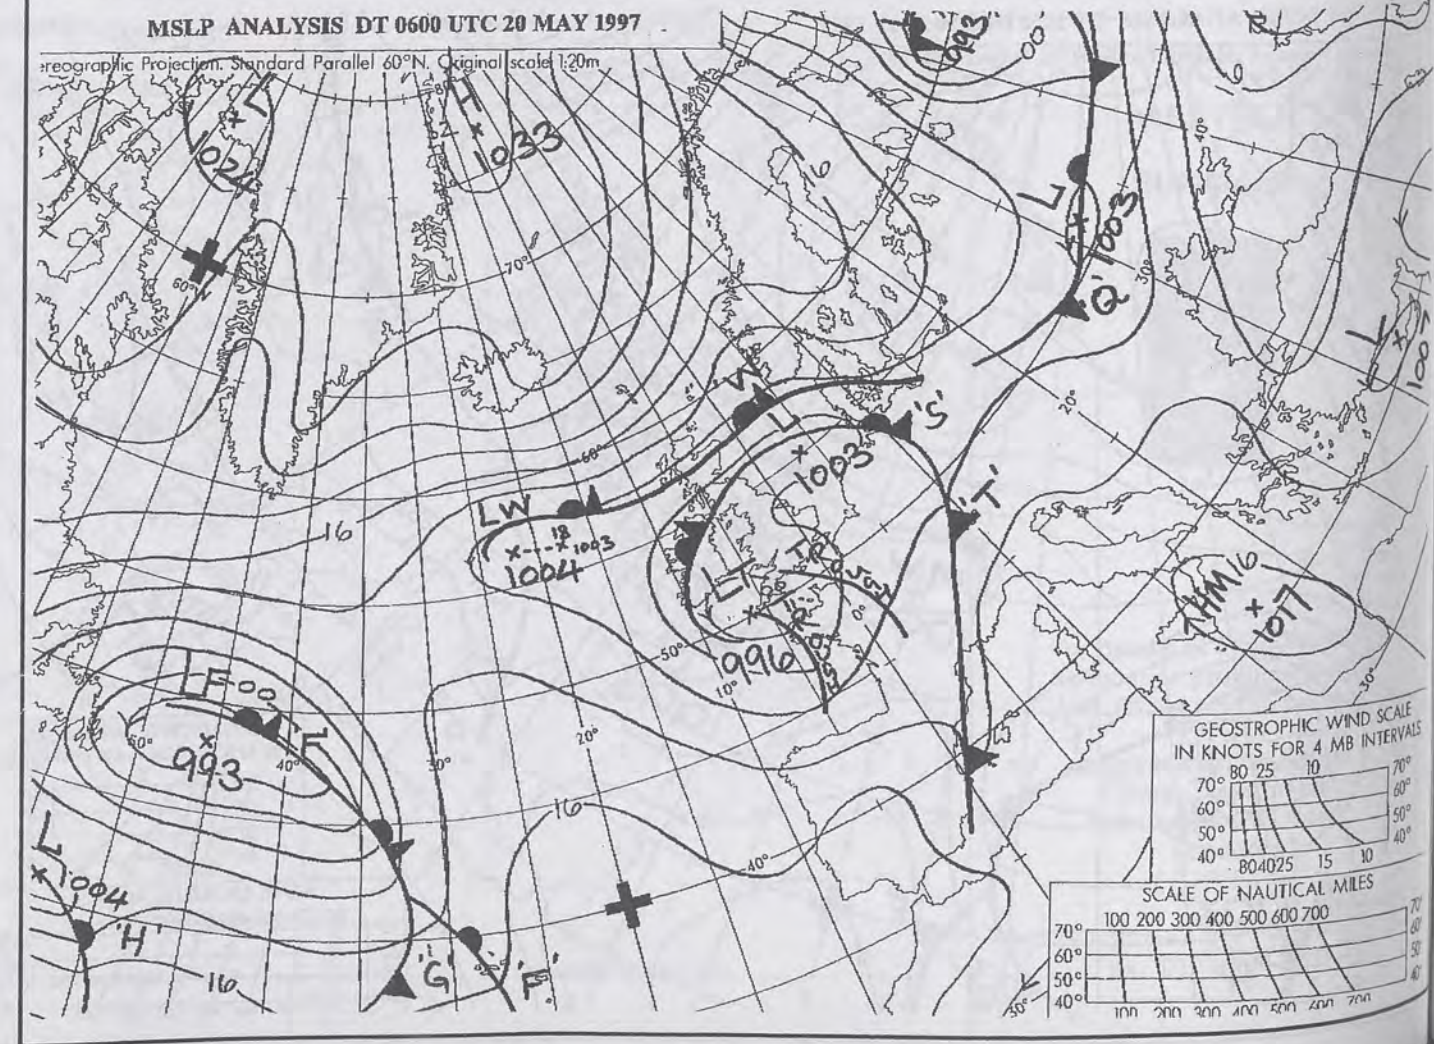 MSLP ANALYSIS DT 0600 UTC 20 MAY 1997
reographic Projection. Standard Parallel 60°N. Original scale 1:20m
L
1024
H
1033
993
00
16
16
40°
L
1003
'Q'
30°
L
1007
60°W
70°
W
L
1003
'S'
20°
60°
LW
1004
1003
16
'T'
LT
996
'R'
0°
50°
10°
THM
16
1017
30°
LF
00
993
'E'
50°
40°
30°
20°
16
40°
L
1004
'H'
16
'G'
'F'
30°
GEOSTROPHIC WIND SCALE
IN KNOTS FOR 4 MB INTERVALS
80 25 10
70° 70°
60° 60°
50° 50°
40° 40°
80 40 25 15 10
SCALE OF NAUTICAL MILES
100 200 300 400 500 600 700
70° 70°
60° 60°
50° 50°
40° 40°
100 200 300 400 500 600 700